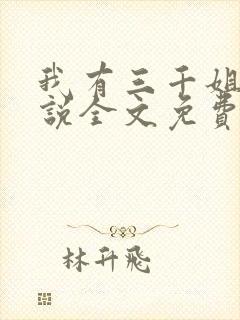 我有三千姐
說全文免費
林升飛